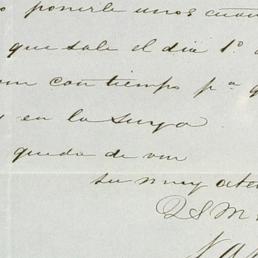 o ponerle unos cuan
que sale el dia 1º. d
con tiempo pª. q
en la suya
queda de vm
su muy aten
Q S M